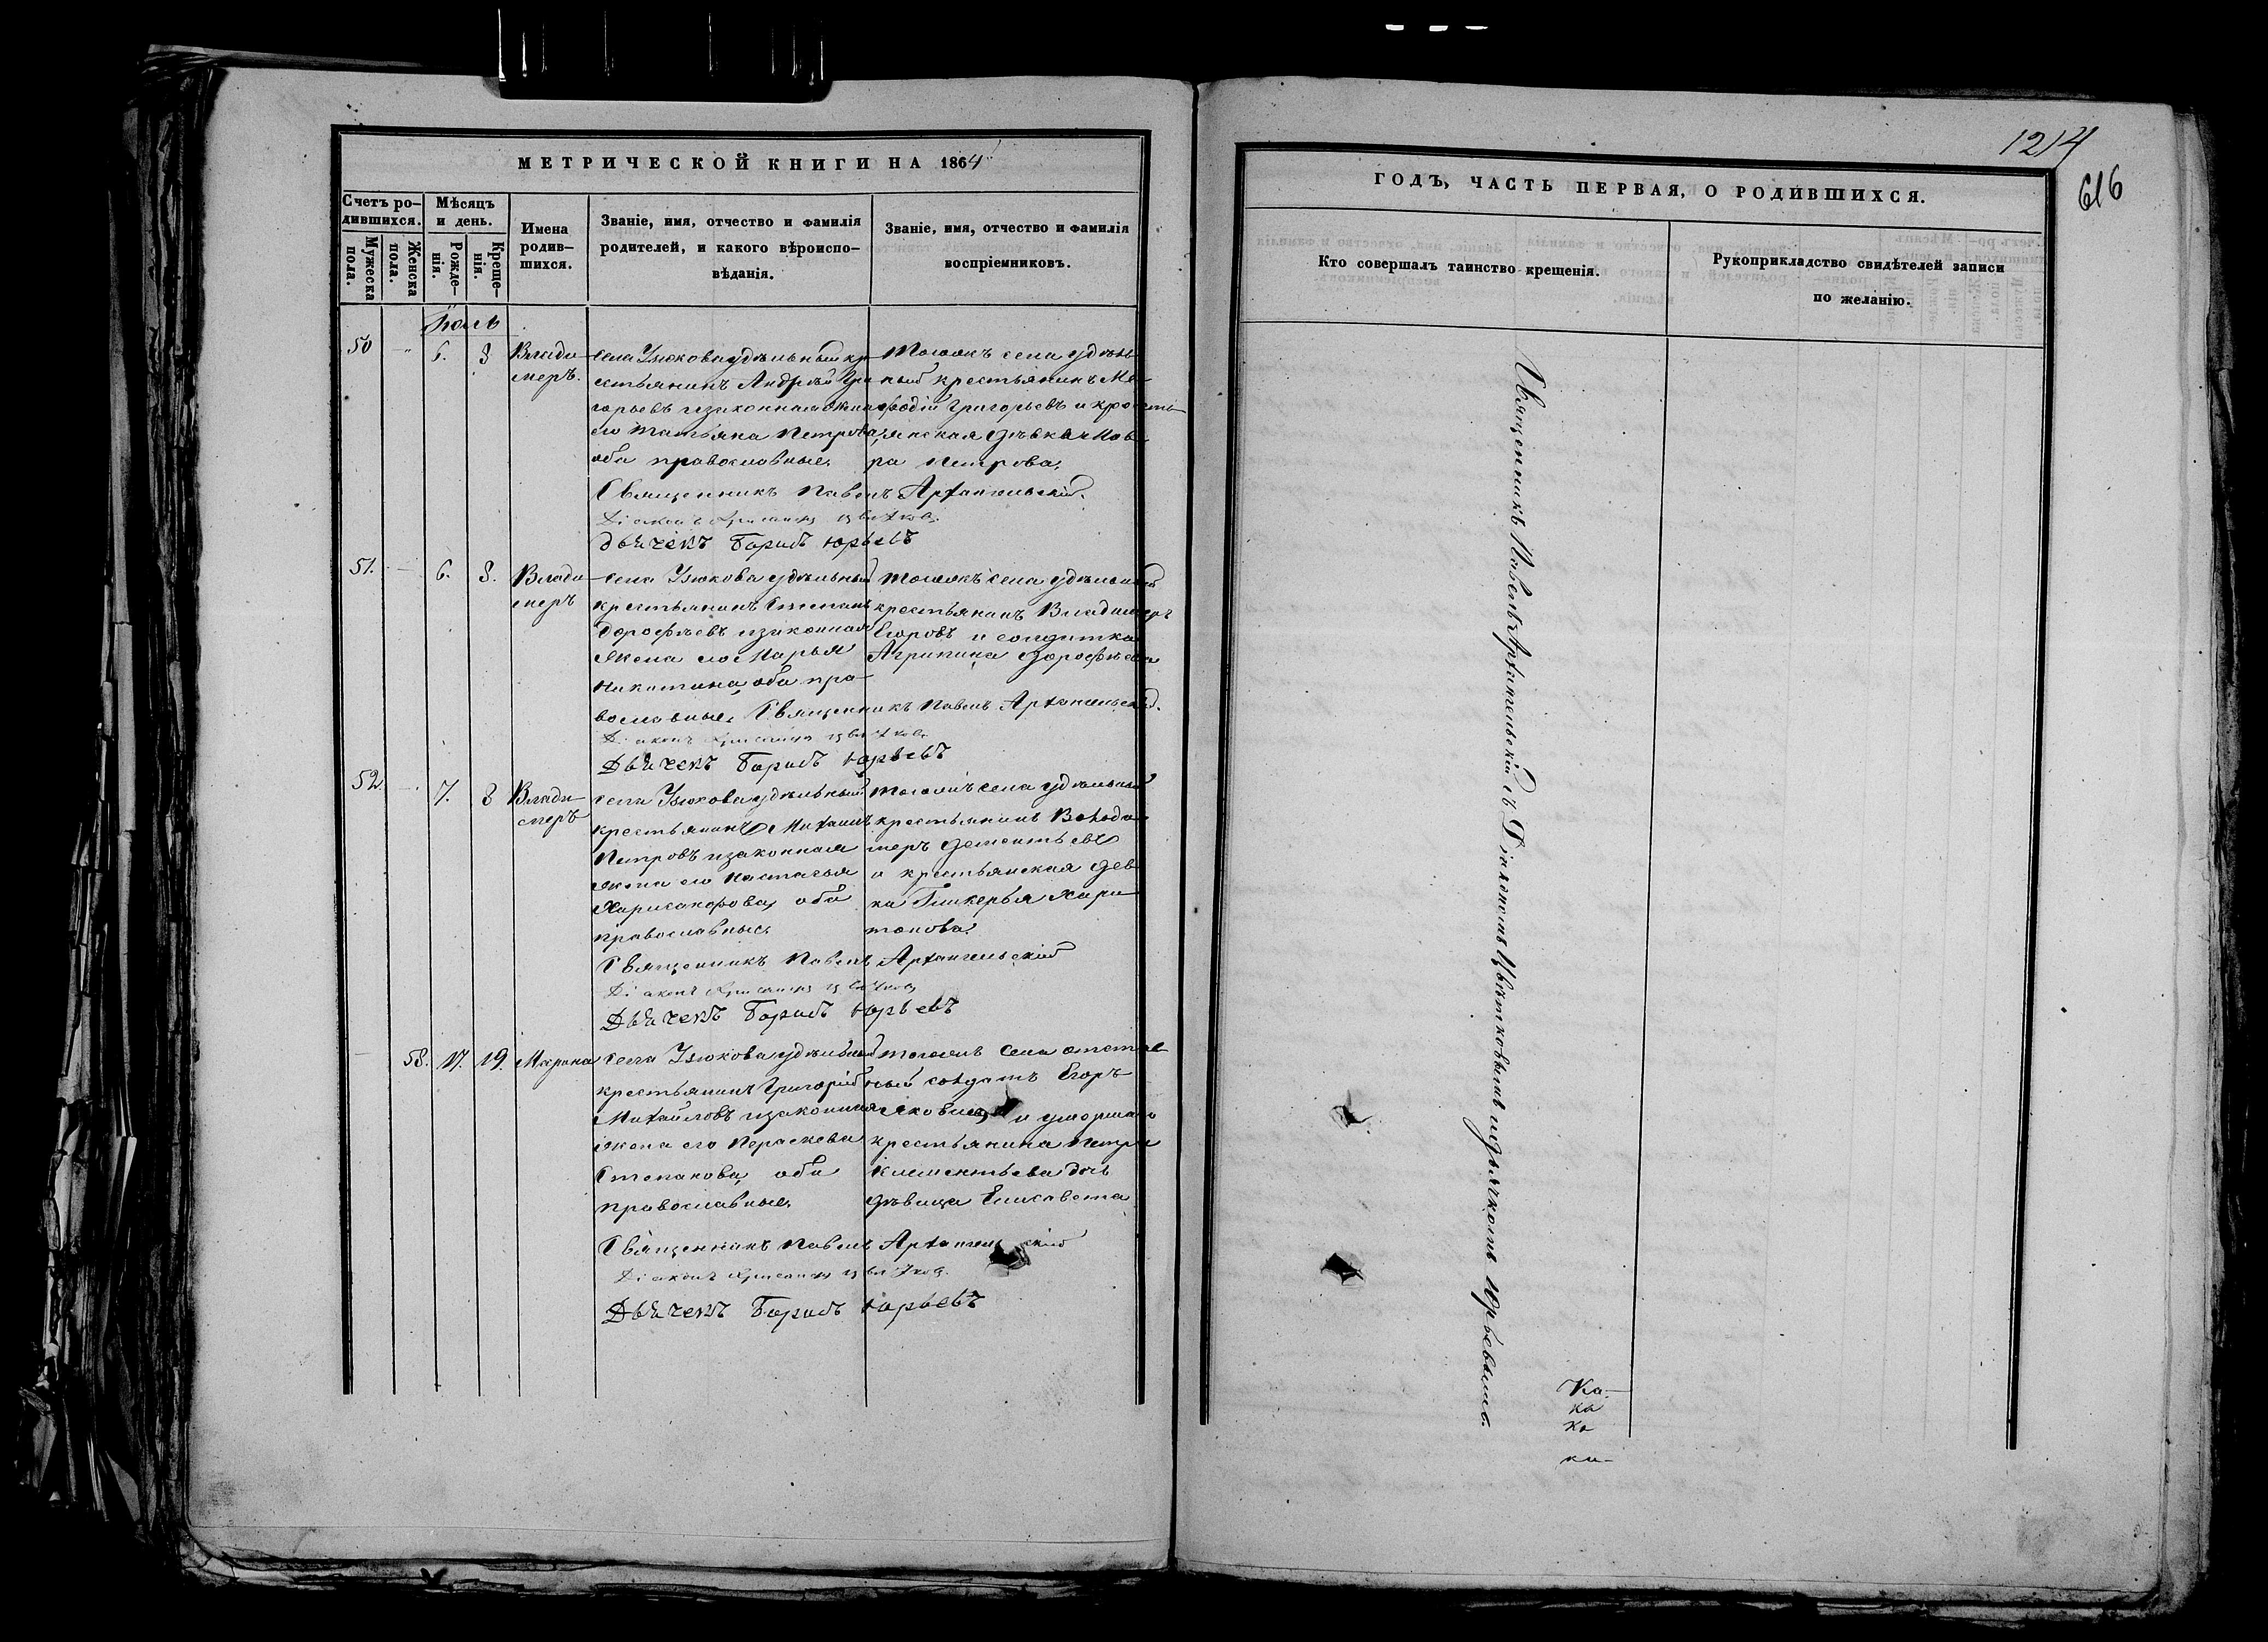 МЕТРИЧЕСКОЙ КНИГИ НА 1864
Счетъ ро-
дившихся.
Мужеска
пола.
Женска
пола.
Мѣсяцъ
и день.
Рожде-
нія.
Креще-
нія.
Имена
родив-
шихся.
Званіе, имя, отчество и фамилія
родителей, и какого вѣроиспо-
вѣданія.
Званіе, имя, отчество и фамилія
воспріемниковъ.
Іюль
50 6. 8 Влади-
меръ.
села Узюкова удѣльный кре-
стьянинъ Андрей Гри
горьевъ и законная жена
его Татьяна Петрова,
оба православные.
Тогожъ села удѣль
ный крестьянинъ Ме-
фодій Григорьевъ и кресть-
янская дѣвка Мав-
ра Петрова.
Священникъ Павелъ Архангельскій.
Діаконъ Цвѣтковъ
дьячекъ Борисъ Юрьевъ
51. 6. 8. Влади-
меръ
села Узюкова удѣльный
крестьянинъ Степанъ
Дорофѣевъ и законная
жена его Марья
Никитина, оба пра-
вославные.
Тогожъ села удѣльный
крестьянинъ Владимеръ
Егоровъ и солдатка
Агрипина Дорофѣева
Священникъ Павелъ Архангельскій.
Діаконъ Цвѣтковъ
Дьячекъ Борисъ Юрьевъ
52. 7. 8 Влади-
меръ
села Узюкова удѣльный
крестьянинъ Михаилъ
Петровъ и законная
жена его Настасья
Никифорова, оба
православные.
Тогожъ села удѣльный
крестьянинъ Володи
меръ Дементьевъ
и крестьянская дев
ка Гликерья Хари
тонова.
Священникъ Павелъ Архангельскій
Діаконъ Цвѣтковъ
Дьячекъ Борисъ Юрьевъ
58. 17. 19. Марина
села Узюкова удѣльный
крестьянинъ Григорій
Михайловъ и законная
жена его Пераскева
Степанова, оба
православные.
Тогожъ села отстав
ный солдатъ Егоръ
Яковлевъ и умершаго
крестьянина Петра
Климентьева дочь
дѣвица Елисавета
Священникъ Павелъ Архангельскій
Діаконъ Цвѣтковъ
Дьячекъ Борисъ Юрьевъ
1214
616
ГОДЪ, ЧАСТЬ ПЕРВАЯ, О РОДИВШИХСЯ.
Кто совершалъ таинство крещенія.
Рукоприкладство свидѣтелей записи
по желанію.
Священникъ Павелъ Архангельскій съ Діакономъ Цвѣтковымъ и дьячкомъ Юрьевымъ.
Ка-
ка
ка
ка-